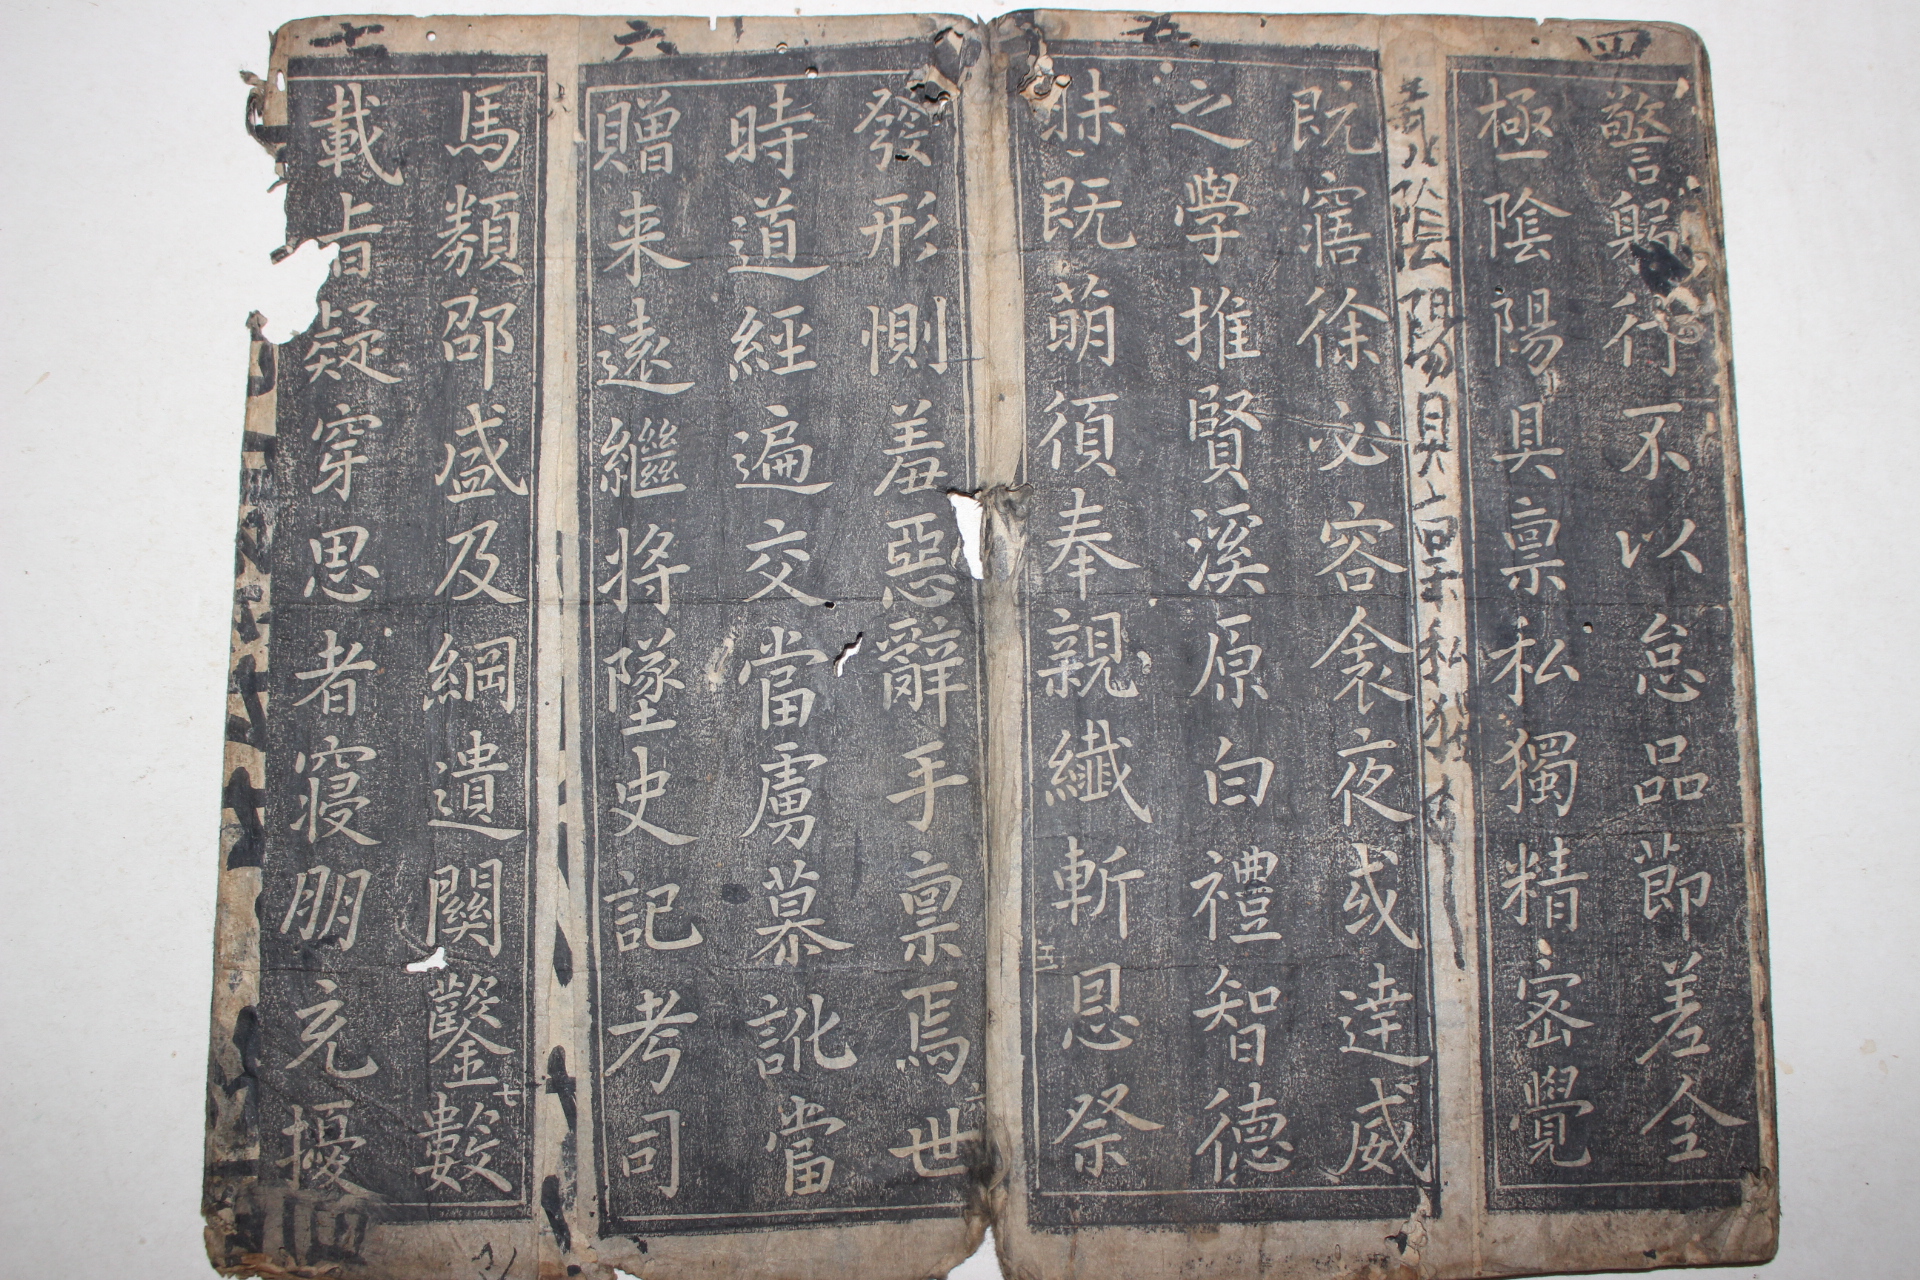 四
警躬行不以怠品節差全
極陰陽具禀私獨精密覺
陰陽具禀私獨
五
既寤徐必容衾夜或達威
之學推賢溪原白禮智德
昧既萌須奉親纖斬恩祭
五
六
發形惻羞惡辭手禀焉世
六
時道經遍交當虜慕訛當
贈来遠繼將墜史記考司
七
馬類邵盛及綱遺關鑿數
七
載旨疑穿思者寝朋充擾